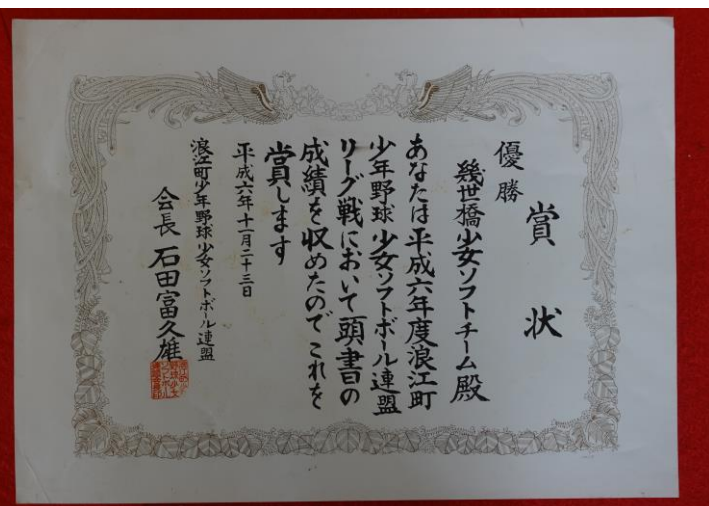 賞状
優勝
幾世橋少女ソフトチーム殿
あなたは平成六年度浪江町
少年野球少女ソフトボール連盟
リーグ戦において頭書の
成績を収めたのでこれを
賞します
平成六年十一月二十三日
浪江町少年野球少女ソフトボール連盟
会長 石田富久雄